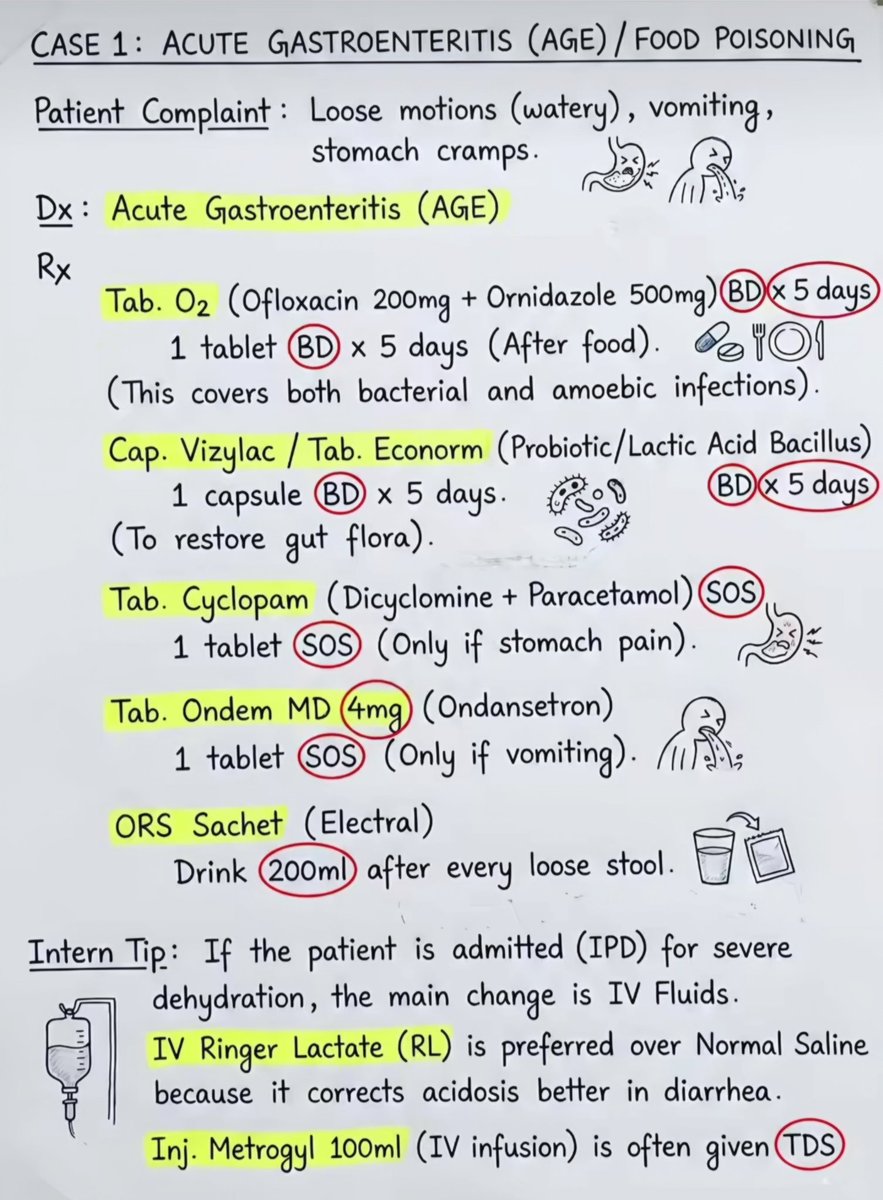 CASE 1: ACUTE GASTROENTERITIS (AGE)/FOOD POISONING
Patient Complaint: Loose motions (watery), vomiting,
stomach cramps.
Dx: Acute Gastroenteritis (AGE)
Rx
Tab. O₂ (Ofloxacin 200mg + Ornidazole 500mg) BD x 5 days
1 tablet BD x 5 days (After food).
(This covers both bacterial and amoebic infections).
Cap. Vizylac / Tab. Econorm (Probiotic/Lactic Acid Bacillus)
1 capsule BD x 5 days. BD x 5 days
(To restore gut flora).
Tab. Cyclopam (Dicyclomine + Paracetamol) SOS
1 tablet SOS (Only if stomach pain).
Tab. Ondem MD 4mg (Ondansetron)
1 tablet SOS (Only if vomiting).
ORS Sachet (Electral)
Drink 200ml after every loose stool.
Intern Tip: If the patient is admitted (IPD) for severe
dehydration, the main change is IV Fluids.
IV Ringer Lactate (RL) is preferred over Normal Saline
because it corrects acidosis better in diarrhea.
Inj. Metrogyl 100ml (IV infusion) is often given TDS